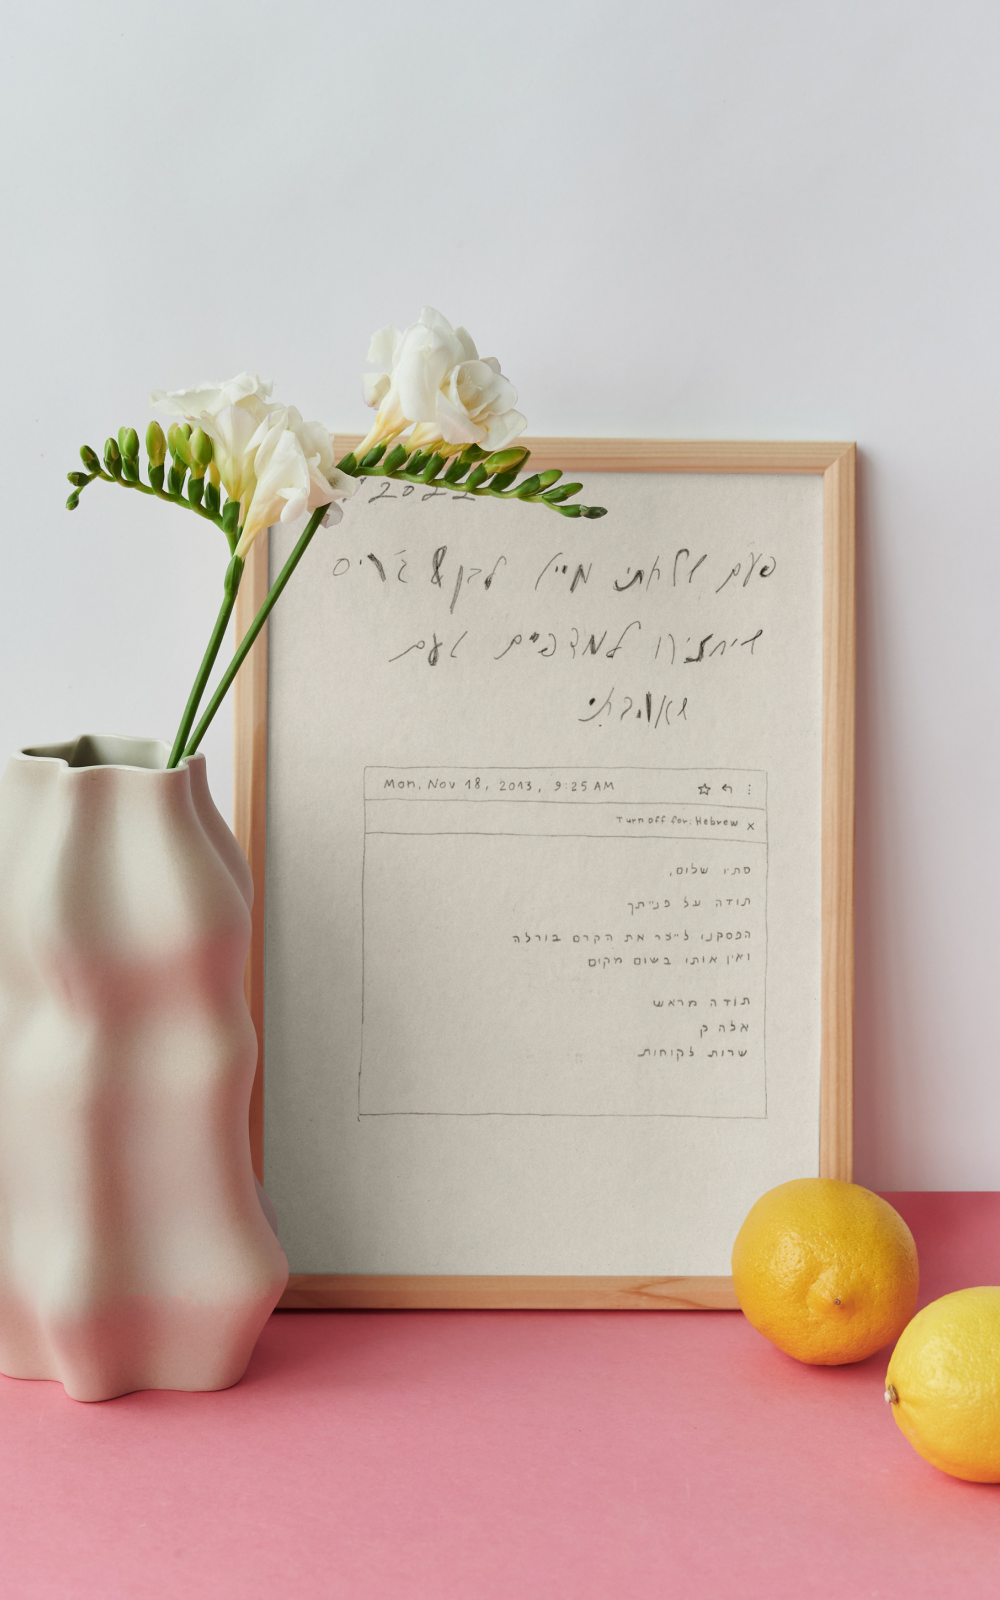 2022
פעם שלחתי מייל לבן&ג'ריס
שיחזירו למדפיים טעם
שאהבתי
Mon, Nov 18, 2013, 9:25 AM
Turn off for: Hebrew x
סתיו שלום,
תודה על פנייתך
הפסקנו לייצר את הקרם בורלה
ואין אותו בשום מקום
תודה מראש
אלה ק
שרות לקוחות